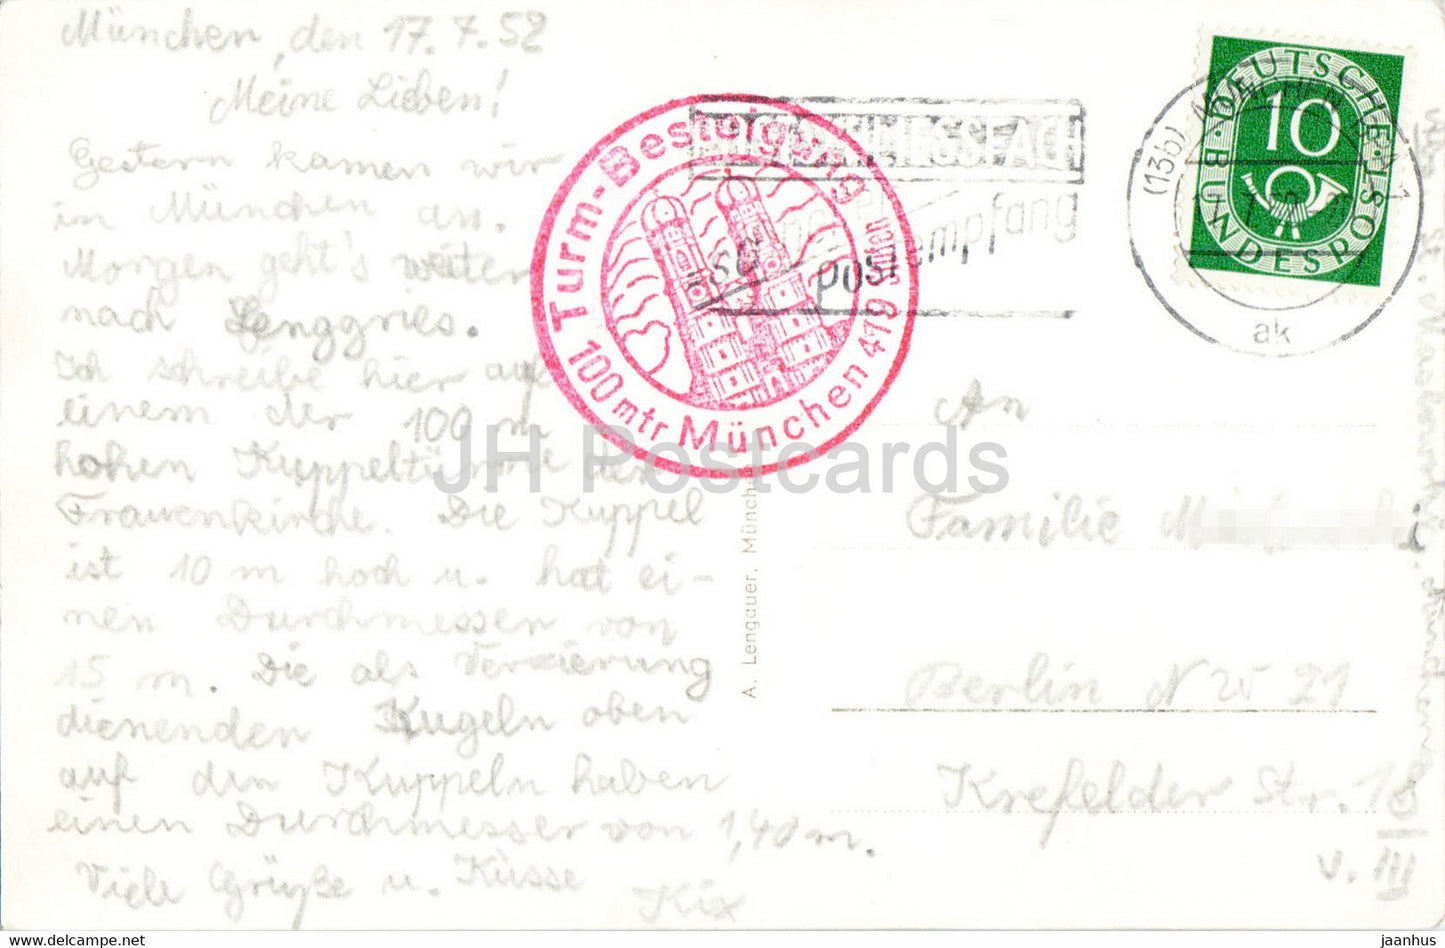 München, den 17.7.52
Meine Lieben!
Gestern kamen wir
in München an.
Morgen geht's weiter
nach Lenggries.
Ich schreibe hier auf
einem der 100 m
hohen Kuppeltürme der
Frauenkirche. Die Kuppel
ist 10 m hoch u. hat ei-
nen Durchmessen von
15 m. Die als Verzierung
dienenden Kugeln oben
auf den Kuppeln haben
einen Durchmesser von 1,40 m.
Viele Grüße u. Küsse
Kix
Turm-Besteigung
100 mtr München 479 Stufen
Postempfang
(13b) MÜNCHEN
ak
DEUTSCHE BUNDESPOST
10
A. Lengauer, München
An
Familie
Berlin NW 21
Krefelder Str. 18
v. III
JH Postcards
delcampe.net
jaanhus